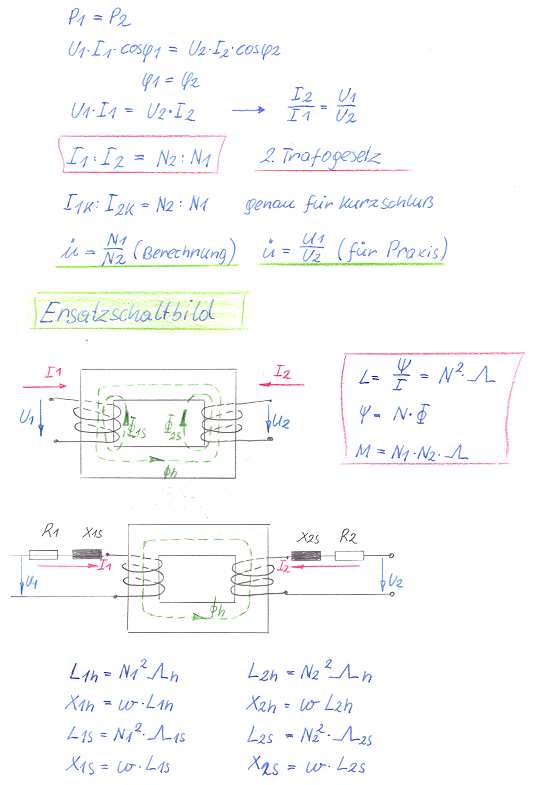 P1 = P2
U1·I1·cosφ1 = U2·I2·cosφ2
φ1 = φ2
U1·I1 = U2·I2 → I2/I1 = U1/U2
I1 : I2 = N2 : N1 2. Trafogesetz
I1K : I2K = N2 : N1 genau für Kurzschluß
ü = N1/N2 (Berechnung) ü = U1/U2 (für Praxis)
Ersatzschaltbild
I1 I2
U1 Φ1s Φ2s U2
Φh
L = Ψ/I = N²·Λ
Ψ = N·Φ
M = N1·N2·Λ
R1 X1s X2s R2
I1 I2
U1 U2
Φh
L1h = N1²·Λh L2h = N2²·Λh
X1h = ω·L1h X2h = ω·L2h
L1s = N1²·Λ1s L2s = N2²·Λ2s
X1s = ω·L1s X2s = ω·L2s